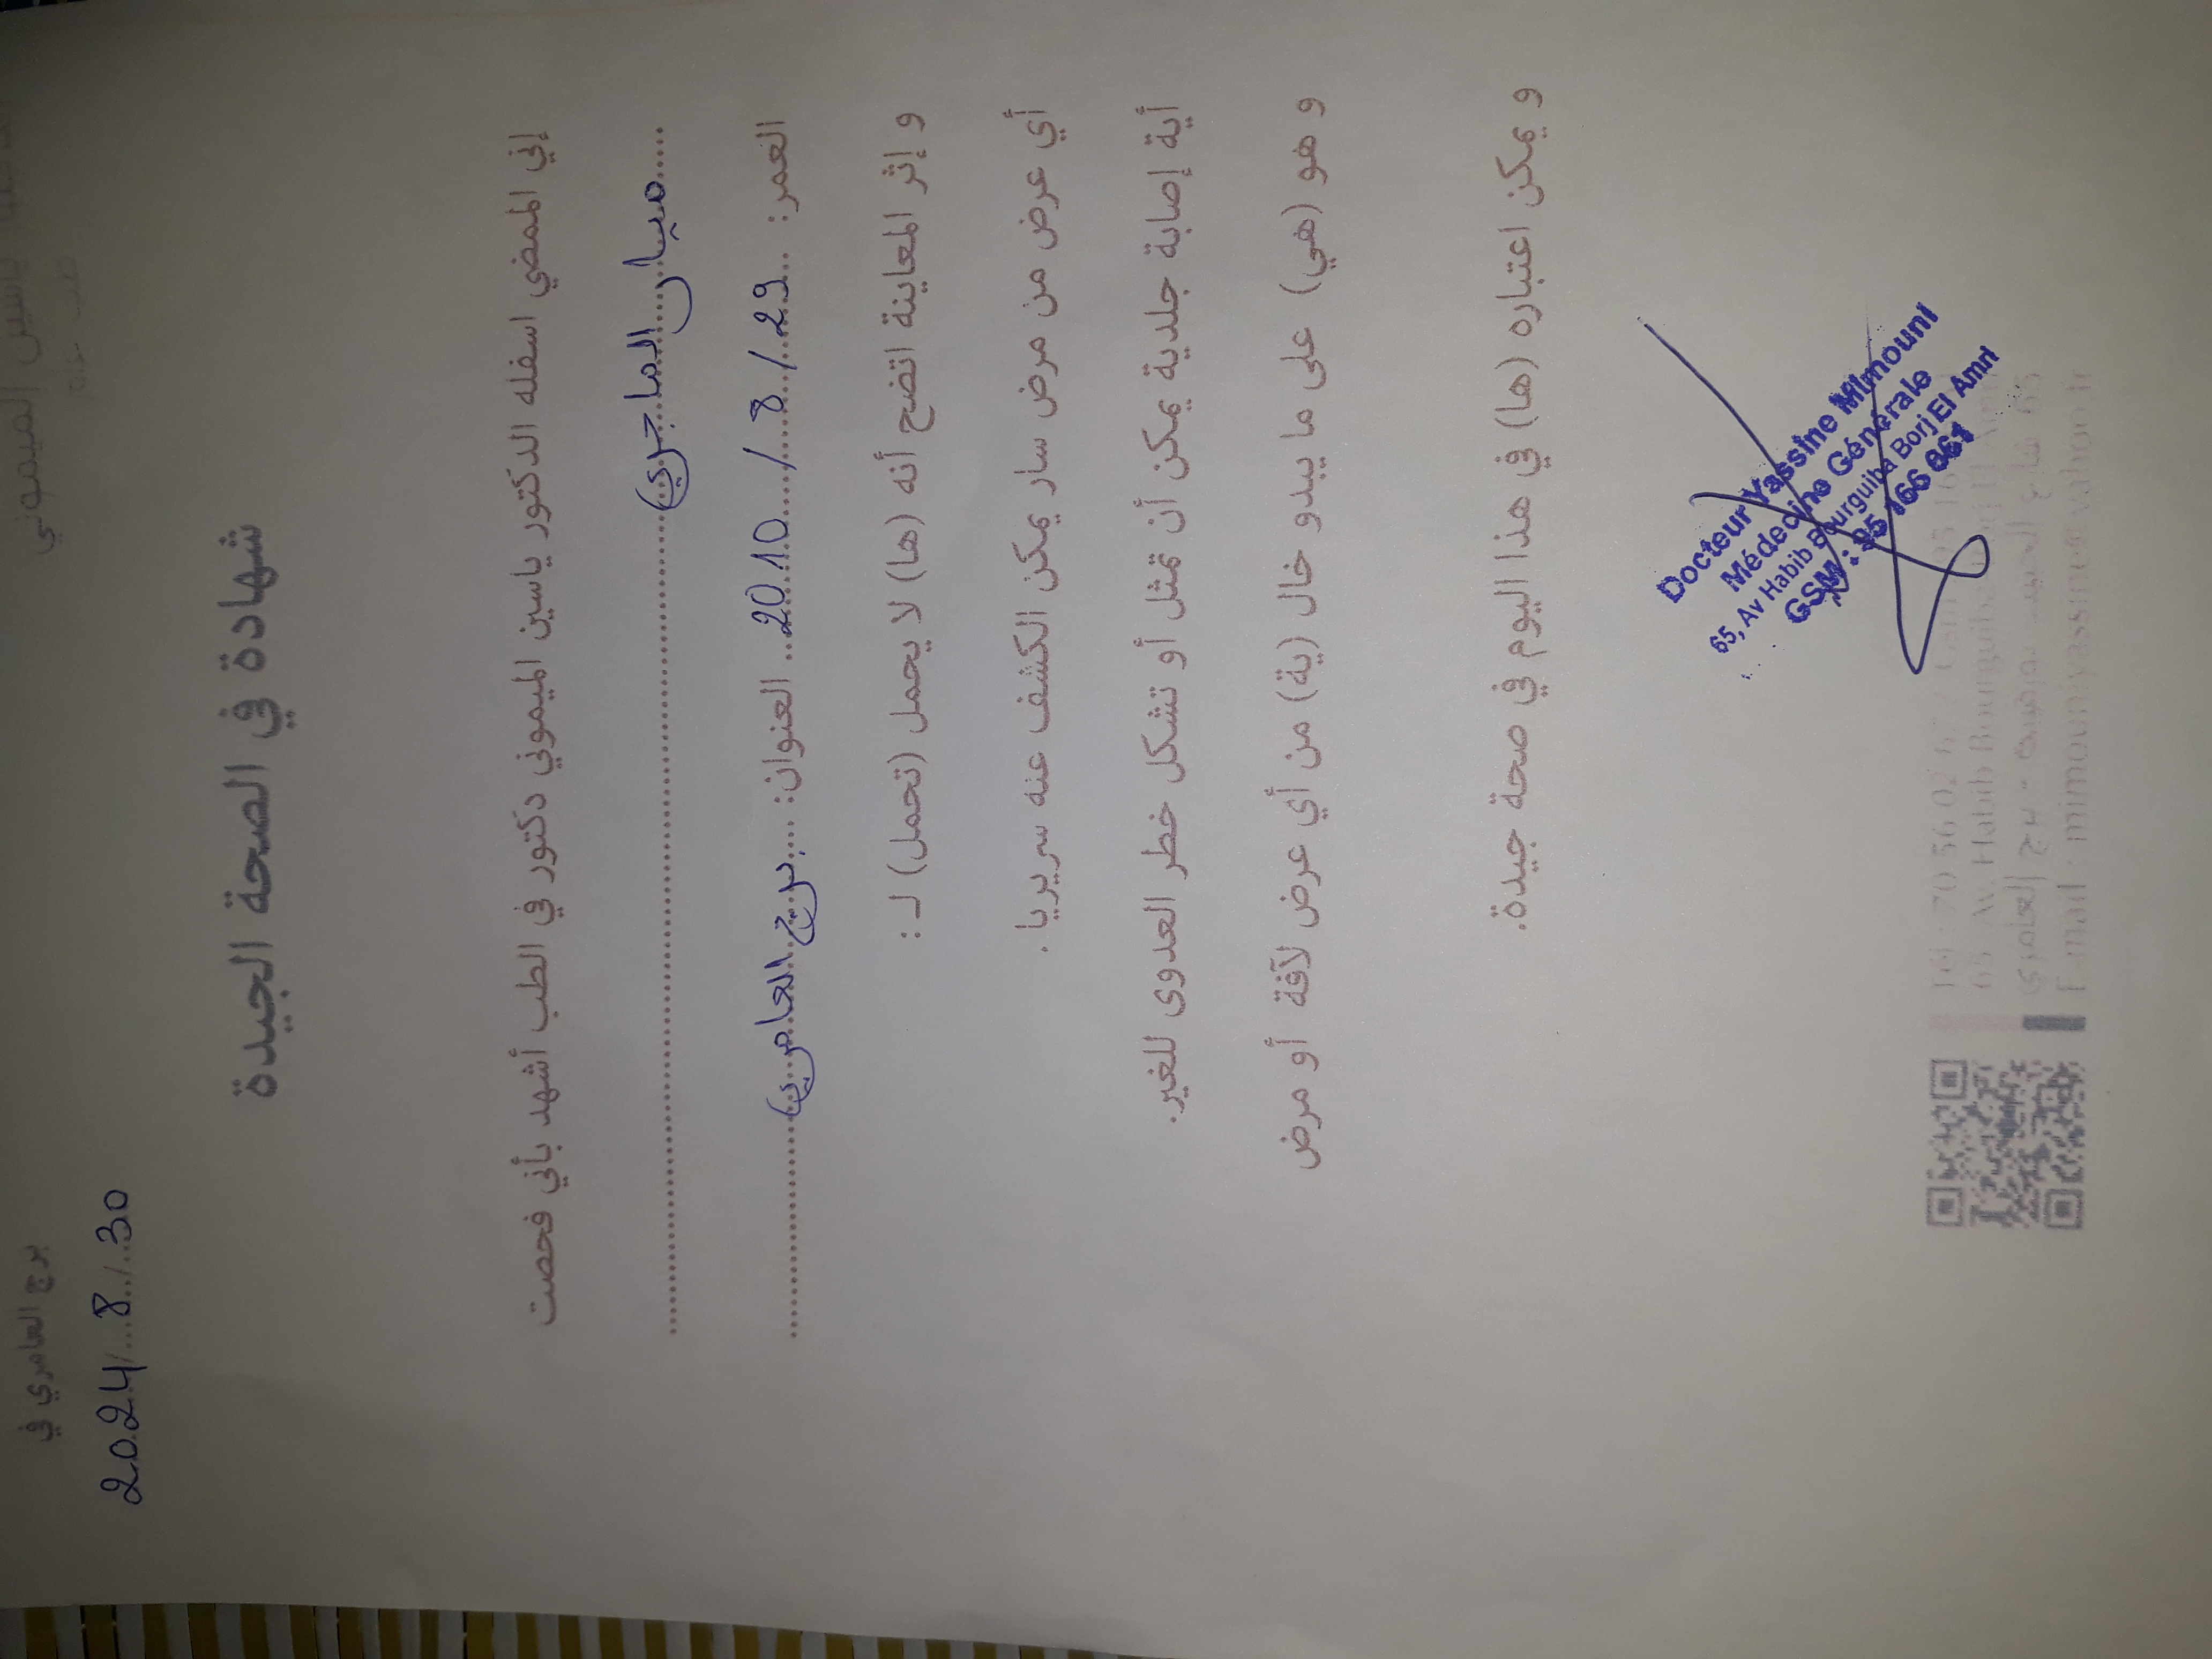 ياسين الميموني
برج العامري في
2024/8/30
شهادة في الصحة الجيدة
إني الممضي اسفله الدكتور ياسين الميموني دكتور في الطب أشهد بأني فحصت
ميار الماجري
العمر: 2010/8/29 العنوان: برج العامري
و إثر المعاينة اتضح أنه (ها) لا يحمل (تحمل) لـ :
أي عرض من مرض سار يمكن الكشف عنه سريريا .
أية إصابة جلدية يمكن أن تمثل أو تشكل خطر العدوى للغير.
و هو (هي) على ما يبدو خال (ية) من أي عرض لآفة أو مرض
و يمكن اعتباره (ها) في هذا اليوم في صحة جيدة.
Docteur Yassine Mimouni
Médecine Générale
65, Av Habib Bourguiba Borj El Amri
GSM : 95 166 061
65, Av Habib Bourguiba
برج العامري
E-mail : mimouniyassine@yahoo.fr